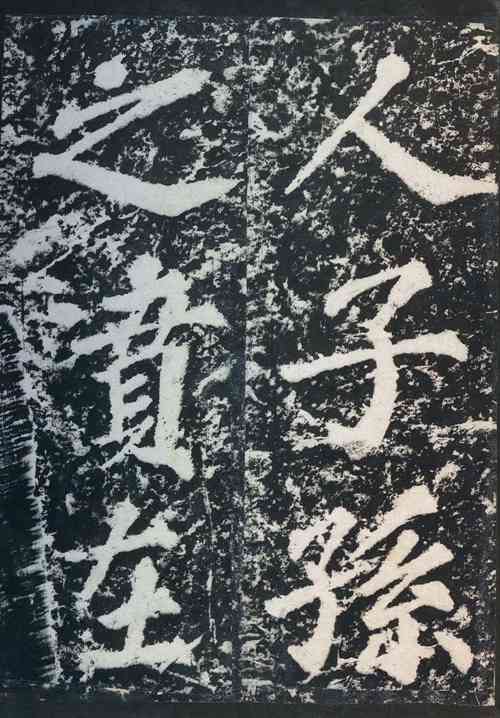 人子孫
之墳在